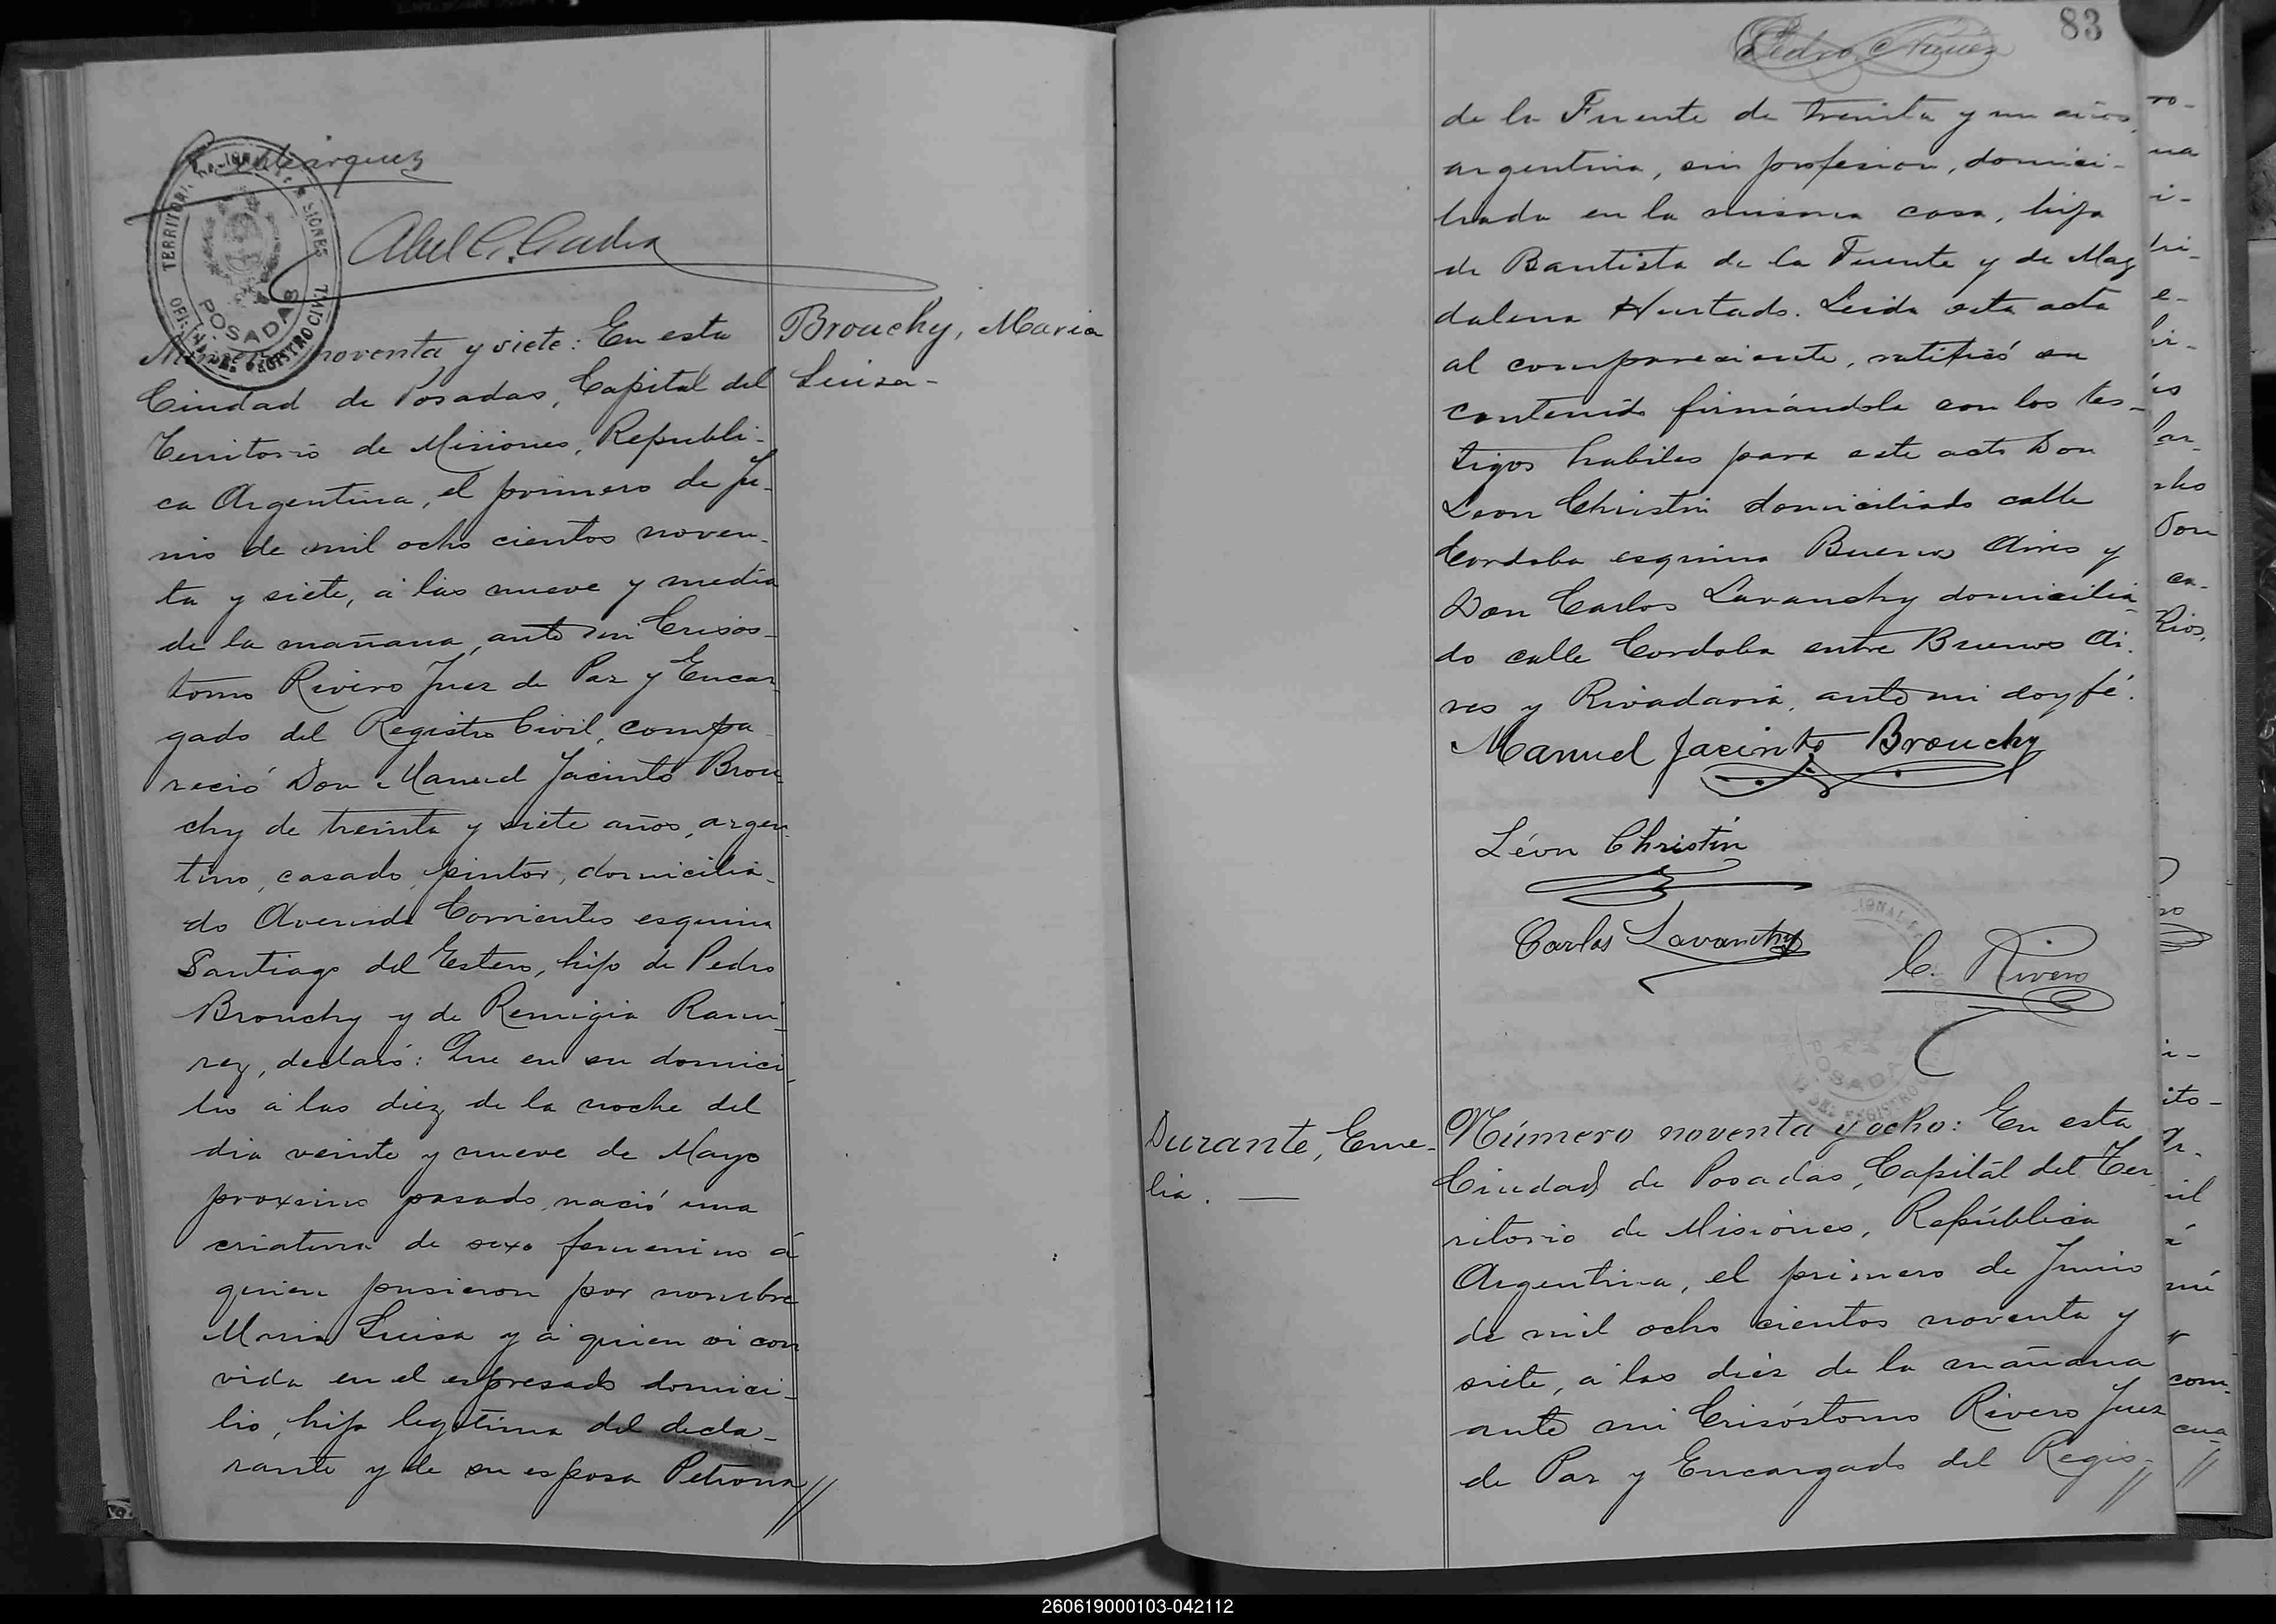 Marquez
TERRITORIO NACIONAL DE MISIONES
OFICINA DEL REGISTRO CIVIL
POSADAS
Abel C.
Número noventa y siete: En esta
Ciudad de Posadas, Capital del
Territorio de Misiones, Republi-
ca Argentina, el primero de Ju-
nio de mil ocho cientos noven-
ta y siete, á las nueve y media
de la mañana, ante mi Crisos-
tomo Rivero Juez de Paz y Encar-
gado del Registro Civil, compa-
reció Don Manuel Jacinto Brou-
chy de treinta y siete años, argen-
tino, casado, pintor, domicilia-
do Avenida Corrientes esquina
Santiago del Estero, hijo de Pedro
Brouchy y de Remigia Rami-
rez, declaró: Que en su domici-
lio á las diez de la noche del
dia veinte y nueve de Mayo
proximo pasado, nació una
criatura de sexo femenino á
quien pusieron por nombre
Maria Luisa y á quien vi con
vida en el espresado domici-
lio, hija legitima del decla-
rante y de su esposa Petrona
Brouchy, Maria
Luisa-
Pedro Nuñez
83
de la Fuente de treinta y un años,
argentina, sin profesion, domici-
liada en la misma casa, hija
de Bautista de la Fuente y de Mag
dalena Hurtado. Leida esta acta
al compareciente, ratificó su
contenido firmándola con los tes-
tigos habiles para este acto Don
Leon Christin domiciliado calle
Cordoba esquina Buenos Aires y
Don Carlos Lavanchy domicilia-
do calle Cordoba entre Buenos Ai-
res y Rivadavia, ante mi doy fé.
Manuel Jacinto Brouchy
Léon Christin
Carlos Lavanchy
C. Rivero
POSADAS
Durante, Eme-
lia. —
Número noventa y ocho: En esta
Ciudad de Posadas, Capital del Ter
ritorio de Misiones, República
Argentina, el primero de Junio
de mil ocho cientos noventa y
siete, á las diez de la mañana
ante mi Crisóstomo Rivero Juez
de Paz y Encargado del Regis-
260619000103-042112